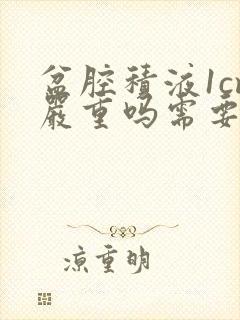 盆腔積液1c
嚴重吗需要
凉重明